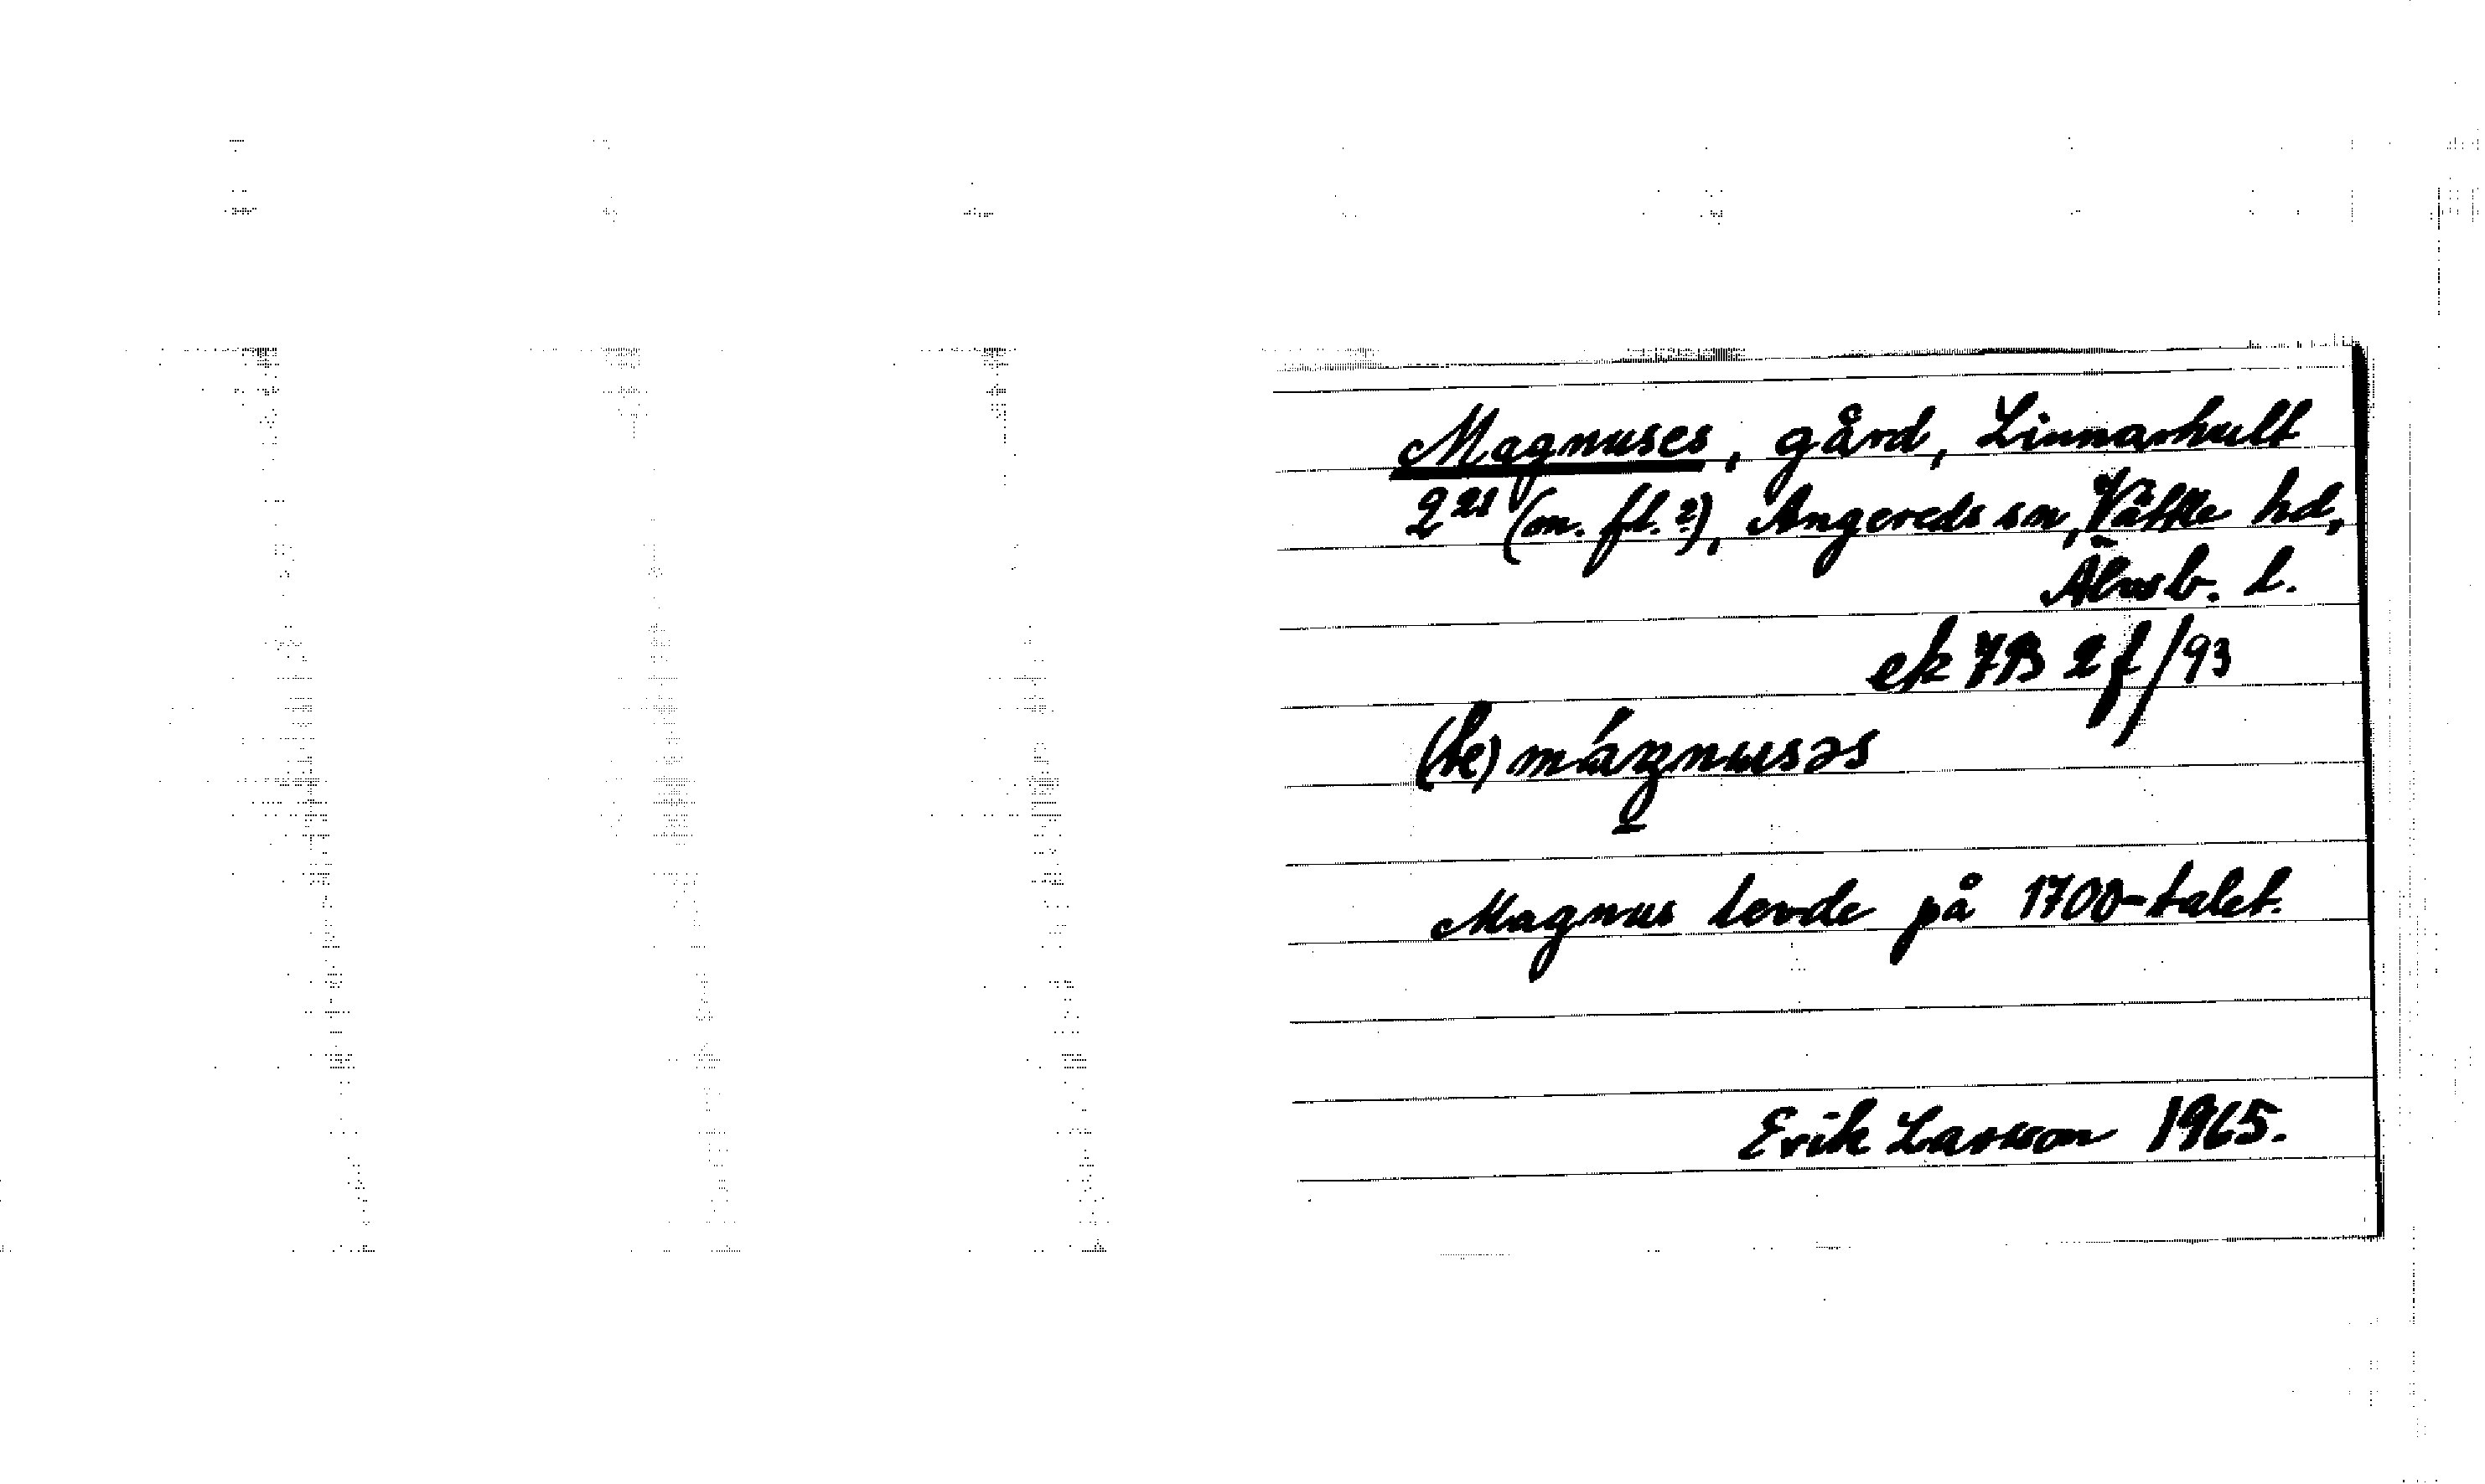 Magnuses, gård, Linnarhult
2²¹ (m. fl.?), Angereds sn, Vättle hd,
Älvsb. l.
ek 7B 2f/93
(te) mágnusəs
Magnus levde på 1700-talet.
Erik Larsson 1965.